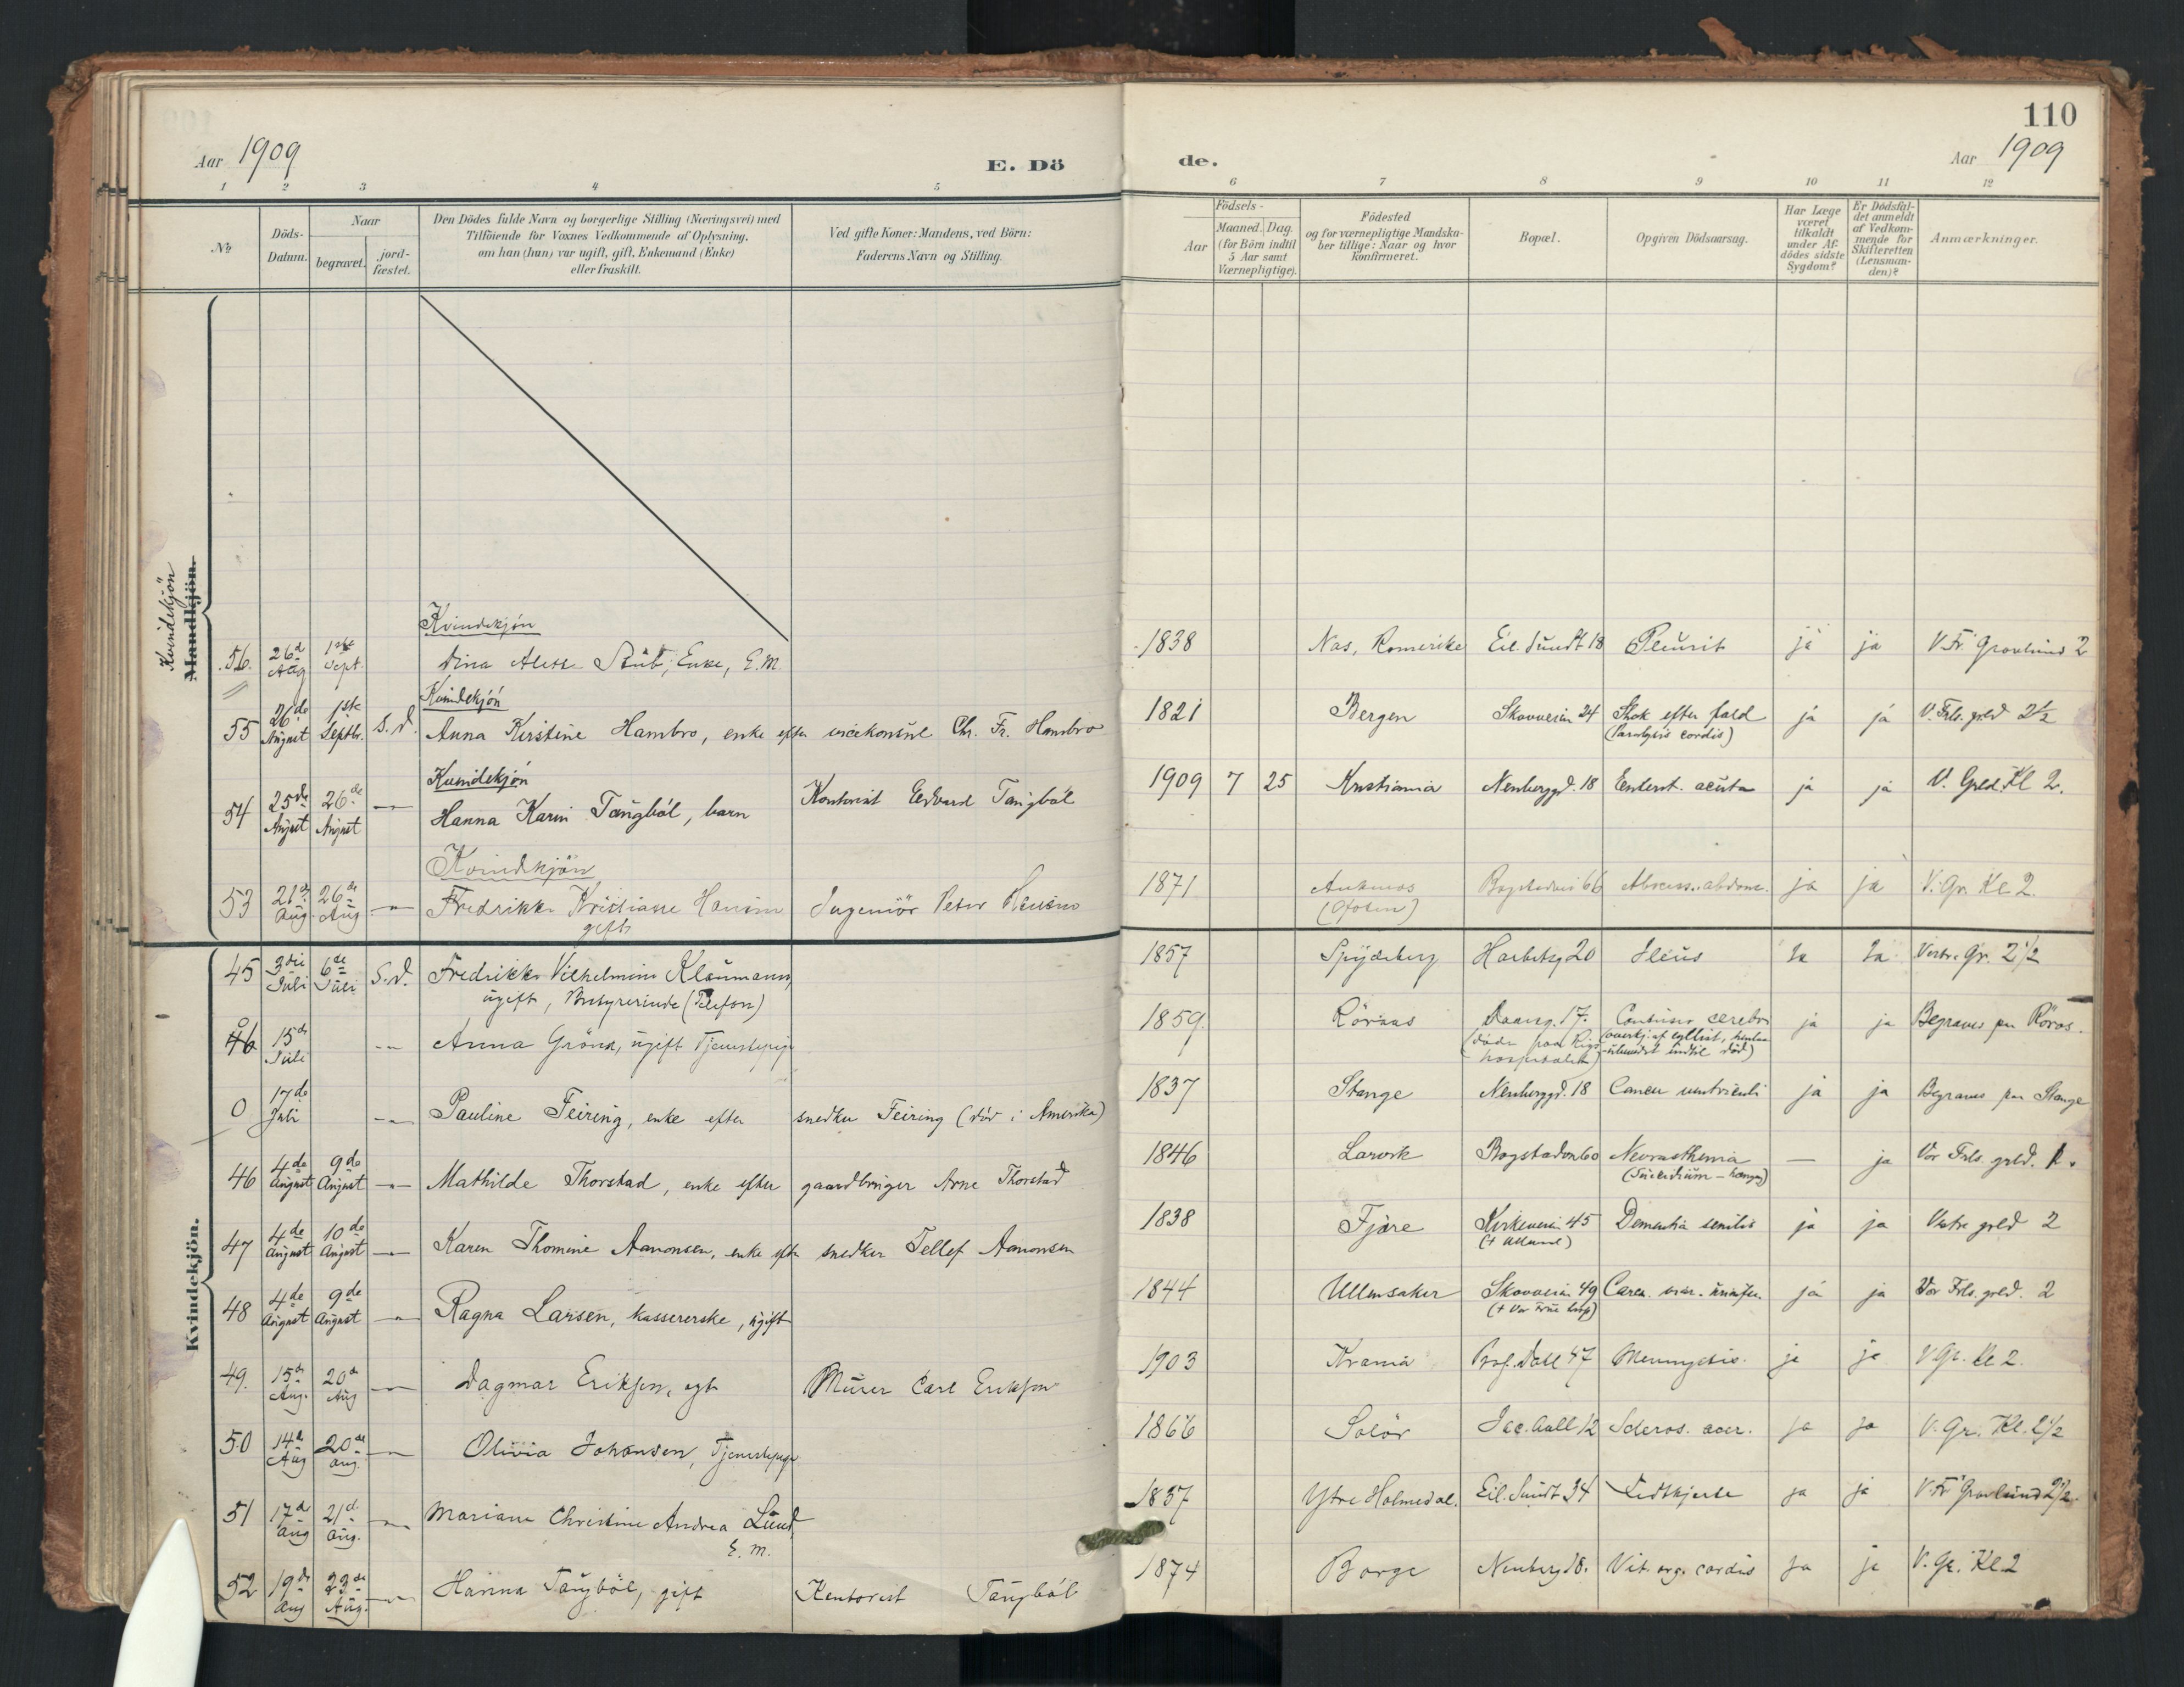 110
Aar 1909
E. Dö
de.
Aar 1909
1 2 3 4 5
6 7 8 9 10 11 12
No
Döds-
Datum.
Naar
begravet.
jord-
fæstet.
Den Dödes fulde Navn og borgerlige Stilling (Næringsvei) med
Tilföiende for Voxnes Vedkommende af Oplysning,
om han (hun) var ugift, gift, Enkemand (Enke)
eller fraskilt.
Ved gifte Koner: Mandens, ved Börn:
Faderens Navn og Stilling.
Födsels-
Aar
Maaned. Dag.
(for Börn indtil
5 Aar samt
Værnepligtige).
Födested
og for værnepligtige Mandska-
ber tillige: Naar og hvor
Konfirmeret.
Bopæl.
Opgiven Dödsaarsag.
Har Læge
været
tilkaldt
under Af-
dödes sidste
Sygdom?
Er Dödsfal-
det anmeldt
af Vedkom-
mende for
Skifteretten
(Lensman-
den)?
Anmærkninger.
Kvindekjön
Mandkjön.
Kvindekjön
56. 26d Aug 1ste Sept. Dina Stüb, Enke, E.M. 1838 Nas, Romerike Eil. Sundt 18 Pleurit ja ja V. Fr. Gravlund 2
Kvindekjön
55 26de August 1ste Septbr. S.d. Anna Kirstine Hambro, enke efter vicekonsul Chr. Fr. Hambro 1821 Bergen Skovveien 24 Shok efter fald ja ja V. Frls. grld 2½
(Paralysis cordis)
Kvindekjön
54 25de August 26de August Hanna Karin Tangböl, barn Kontorist Edvard Tangböl 1909 7 25 Kristiania Neubergd. 18 Enterit. acuta ja ja V. Grld. Kl 2.
Kvindekjön
53 21de Aug. 26de Aug Fredrikke Kristiane Hansen Ingeniör Peter 1871 Ankenes Bogstadvei 66 Abscess. abdom. ja ja V. Gr. Kl 2.
gift (Ofoten)
Kvindekjön.
45 3die Juli 6de Juli S.d. Fredrikke Vilhelmine Klaumann, 1857 Spydeberg 20 Ileus Ja Ja Vestre Gr. 2½
ugift, Bestyrerinde (Telefon)
0
46 15de Juli Anna Gröna, ugift Tjenestepige 1859. Röraas Daasg. 17. Contusio cerebri ja ja Begraves paa Röros.
(döde paa Rigshospitalet)
0 17de Juli Pauline Feiring, enke efter snedker Feiring (död i Amerika) 1837 Stange Neubergd. 18 Cancer ventriculi ja ja Begraves paa Stange
46 4de August 9de August Mathilde Thorstad, enke efter gaardbruger Arne Thorstad 1846 Larvik Bogstadvn 60 Nevrasthenia — ja Vor Frls. grld. 1.
47 4de August 10de August Karen Thomine Aanonsen, enke eft snedker Tellef Aanonsen 1838 Fjære Kirkeveien 45 Dementia senilis ja ja Vestre grld 2
(† Ullevaal)
48 4de August 9de August Ragna Larsen, kassererske, ugift 1844 Ullensaker Skovveien 49 ja ja Vor Frls. grld. 2
49. 15de Aug. 20de Aug Dagmar Eriksen, Murer Carl Eriksen 1903 Krania Prof. Dahl 47 ja ja V. Gr. Kl 2.
50 14d Aug 20de Aug. Olivia Johansen, Tjenestepige 1866 Solör Jac. Aall 12 ja ja V. Gr. Kl. 2½
51 17d Aug 21d. Aug. Mariane Christine Andrea Lund 1837 Ytre Holmedal. Eil. Sundt 34 ja ja V. Fr Gravlund 2½
E.M.
52 19de Aug 23de Aug. Hanna Tangböl, gift Kontorist Tangböl 1874 Borge Neuberg 18. Vit. org. cordis ja ja V. Gr. Kl 2